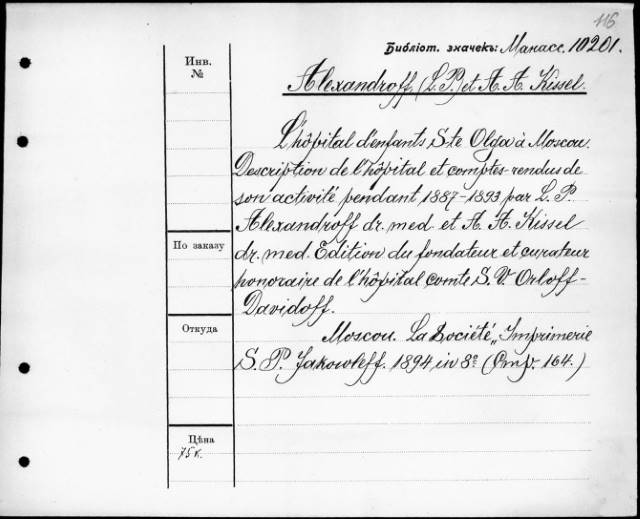 116
Библіот. значекъ: Манасс. 10201.
Инв.
№
Alexandroff (L. P.) et A. A. Kissel.
L'hôpital d'enfants Ste Olga à Moscou.
Description de l'hôpital et comptes-rendus de
son activité pendant 1887-1893 par L. P.
Alexandroff dr. med. et A. A. Kissel
По заказу
dr. med. Edition du fondateur et curateur
honoraire de l'hôpital comte S. V. Orloff-
Davidoff.
Откуда
Moscou. La Société „Imprimerie
S. P. Jakowleff. 1894 in 8º (Стр. 164.)
Цѣна
75 к.